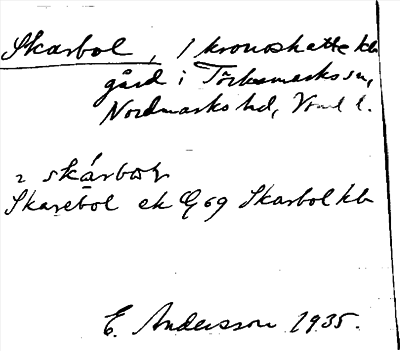 Skarbol, 1 kronoskatte kb
gård i Töcksmarks sn,
Nordmarks hd, Vrml l.
2 skárbɷr
Skarebol ek G 69 Skarbol kb
E. Andersson 1935.